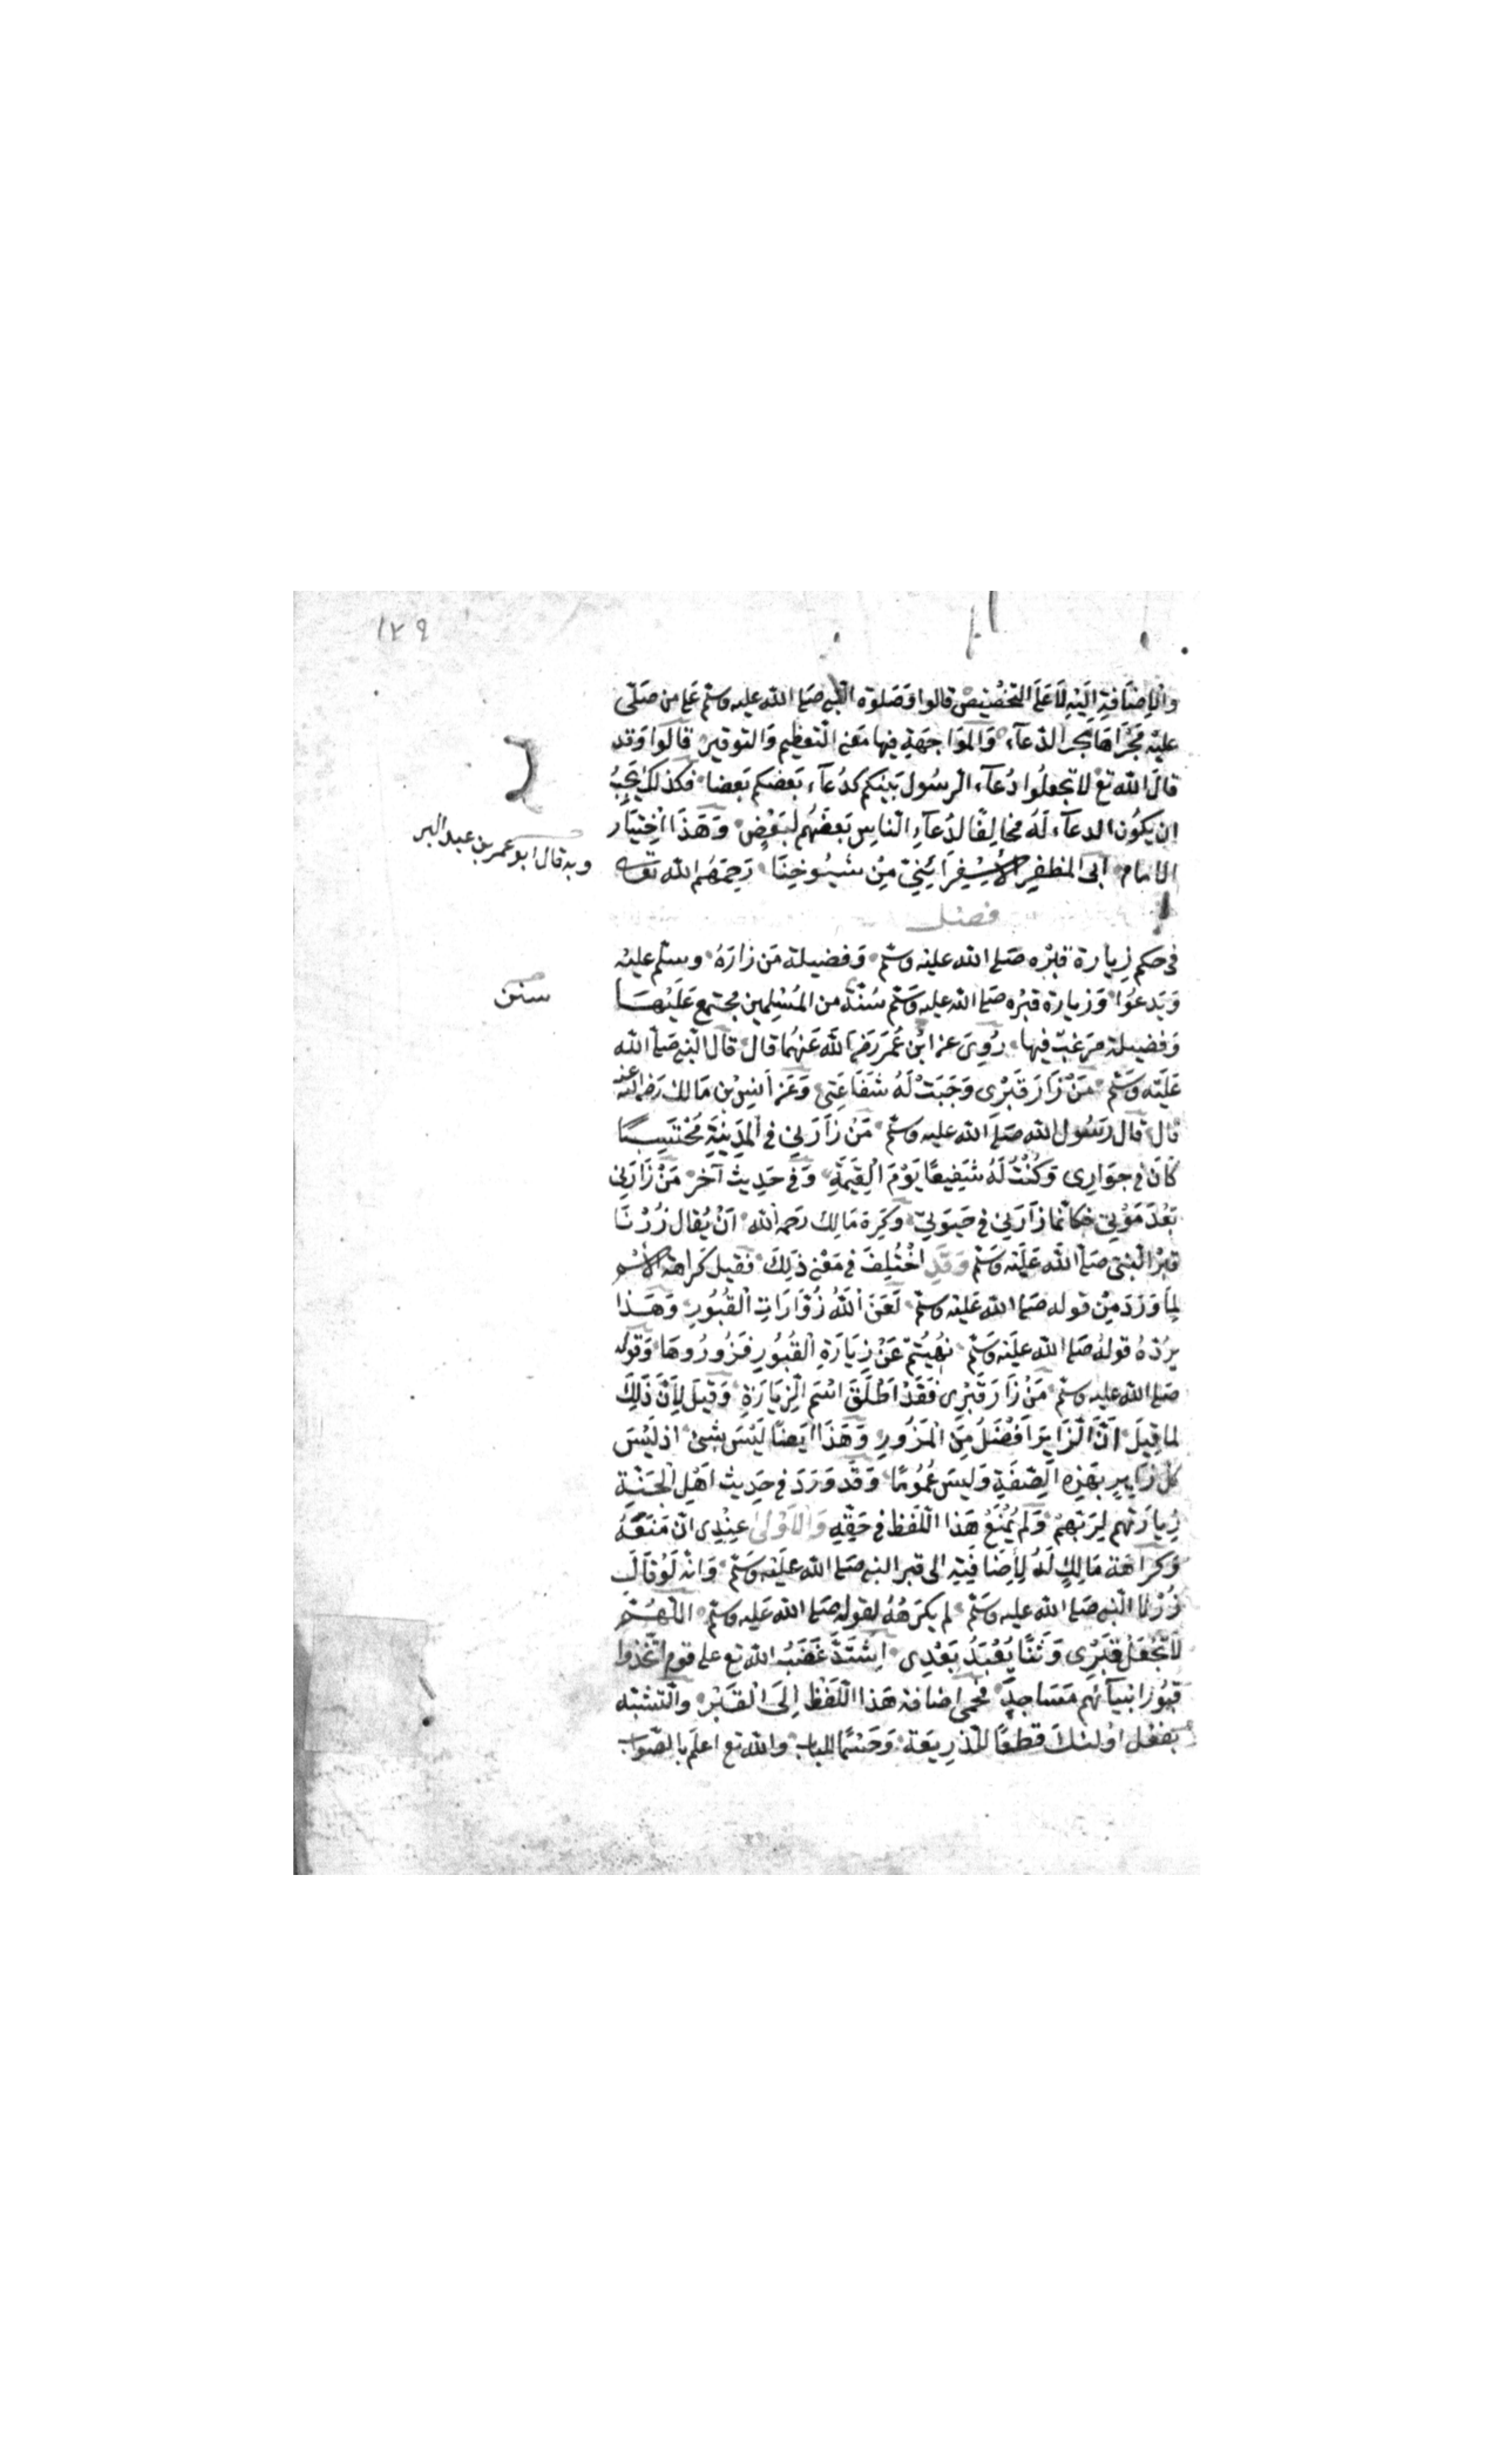 ١٢٩
والاضافة اليه لا على التخصيص قالوا وصلوة النبي صلى الله عليه وسلم على من صلى
عليه مجراها مجر الدعاء والمواجهة فيها معنى التعظيم والتوقير قالوا وقد
قال الله تع لا تجعلوا دعاء الرسول بينكم كدعاء بعضكم بعضا فكذلك يجب
ان يكون الدعاء له مخالفا لدعاء الناس بعضهم لبعض وهذا اختيار
الامام ابى المظفر الاسفرائنى من شيوخنا رحمهم الله تعالى
وبه قال ابو عمر بن عبد البر
فصل
فى حكم زيارة قبره صلى الله عليه وسلم وفضيلة من زاره وسلم عليه
ويدعوا وزيارة قبره صلى الله عليه وسلم سنة من المسلمين مجتمع عليها
سنن
وفضيلة مرغب فيها روى عن ابن عمر رضى الله عنهما قال قال النبي صلى الله
عليه وسلم من زار قبرى وجبت له شفاعتى وعن انس بن مالك رضى الله عنه
قال قال رسول الله صلى الله عليه وسلم من زارنى فى المدينة محتسبا
كان فى جوارى وكنت له شفيعا يوم القيمة وفى حديث آخر من زارنى
بعد موتى فكانما زارنى فى حيوتى وكره مالك رحمه الله ان يقال زرنا
قبر النبى صلى الله عليه وسلم وقد اختلف فى معنى ذلك فقيل كراهة الاسم
لما ورد من قوله صلى الله عليه وسلم لعن الله زوارات القبور وهذا
يرده قوله صلى الله عليه وسلم نهيتم عن زيارة القبور فزوروها وقوله
صلى الله عليه وسلم من زار قبرى فقد اطلق اسم الزيارة وقيل لان ذلك
لما قيل ان الزاير افضل من المزور وهذا ايضا ليس بشئ اذ ليس
كل زاير بهذه الصفة وليس عموما وقد ورد فى حديث اهل الجنة
زيارتهم لربهم ولم يمنع هذا اللفظ فى حقه والاولى عندى ان منعه
وكراهة مالك له لاضافته الى قبر النبي صلى الله عليه وسلم وانه لو قال
زرنا النبي صلى الله عليه وسلم لم يكرهه لقوله صلى الله عليه وسلم اللهم
لا تجعل قبرى وثنا يعبد بعدى اشتد غضب الله تع على قوم اتخذوا
قبور انبيائهم مساجد فحمى اضافة هذا اللفظ الى القبر والتشبه
بفعل اولئك قطعا للذريعة وحسما للباب والله تع اعلم بالصواب